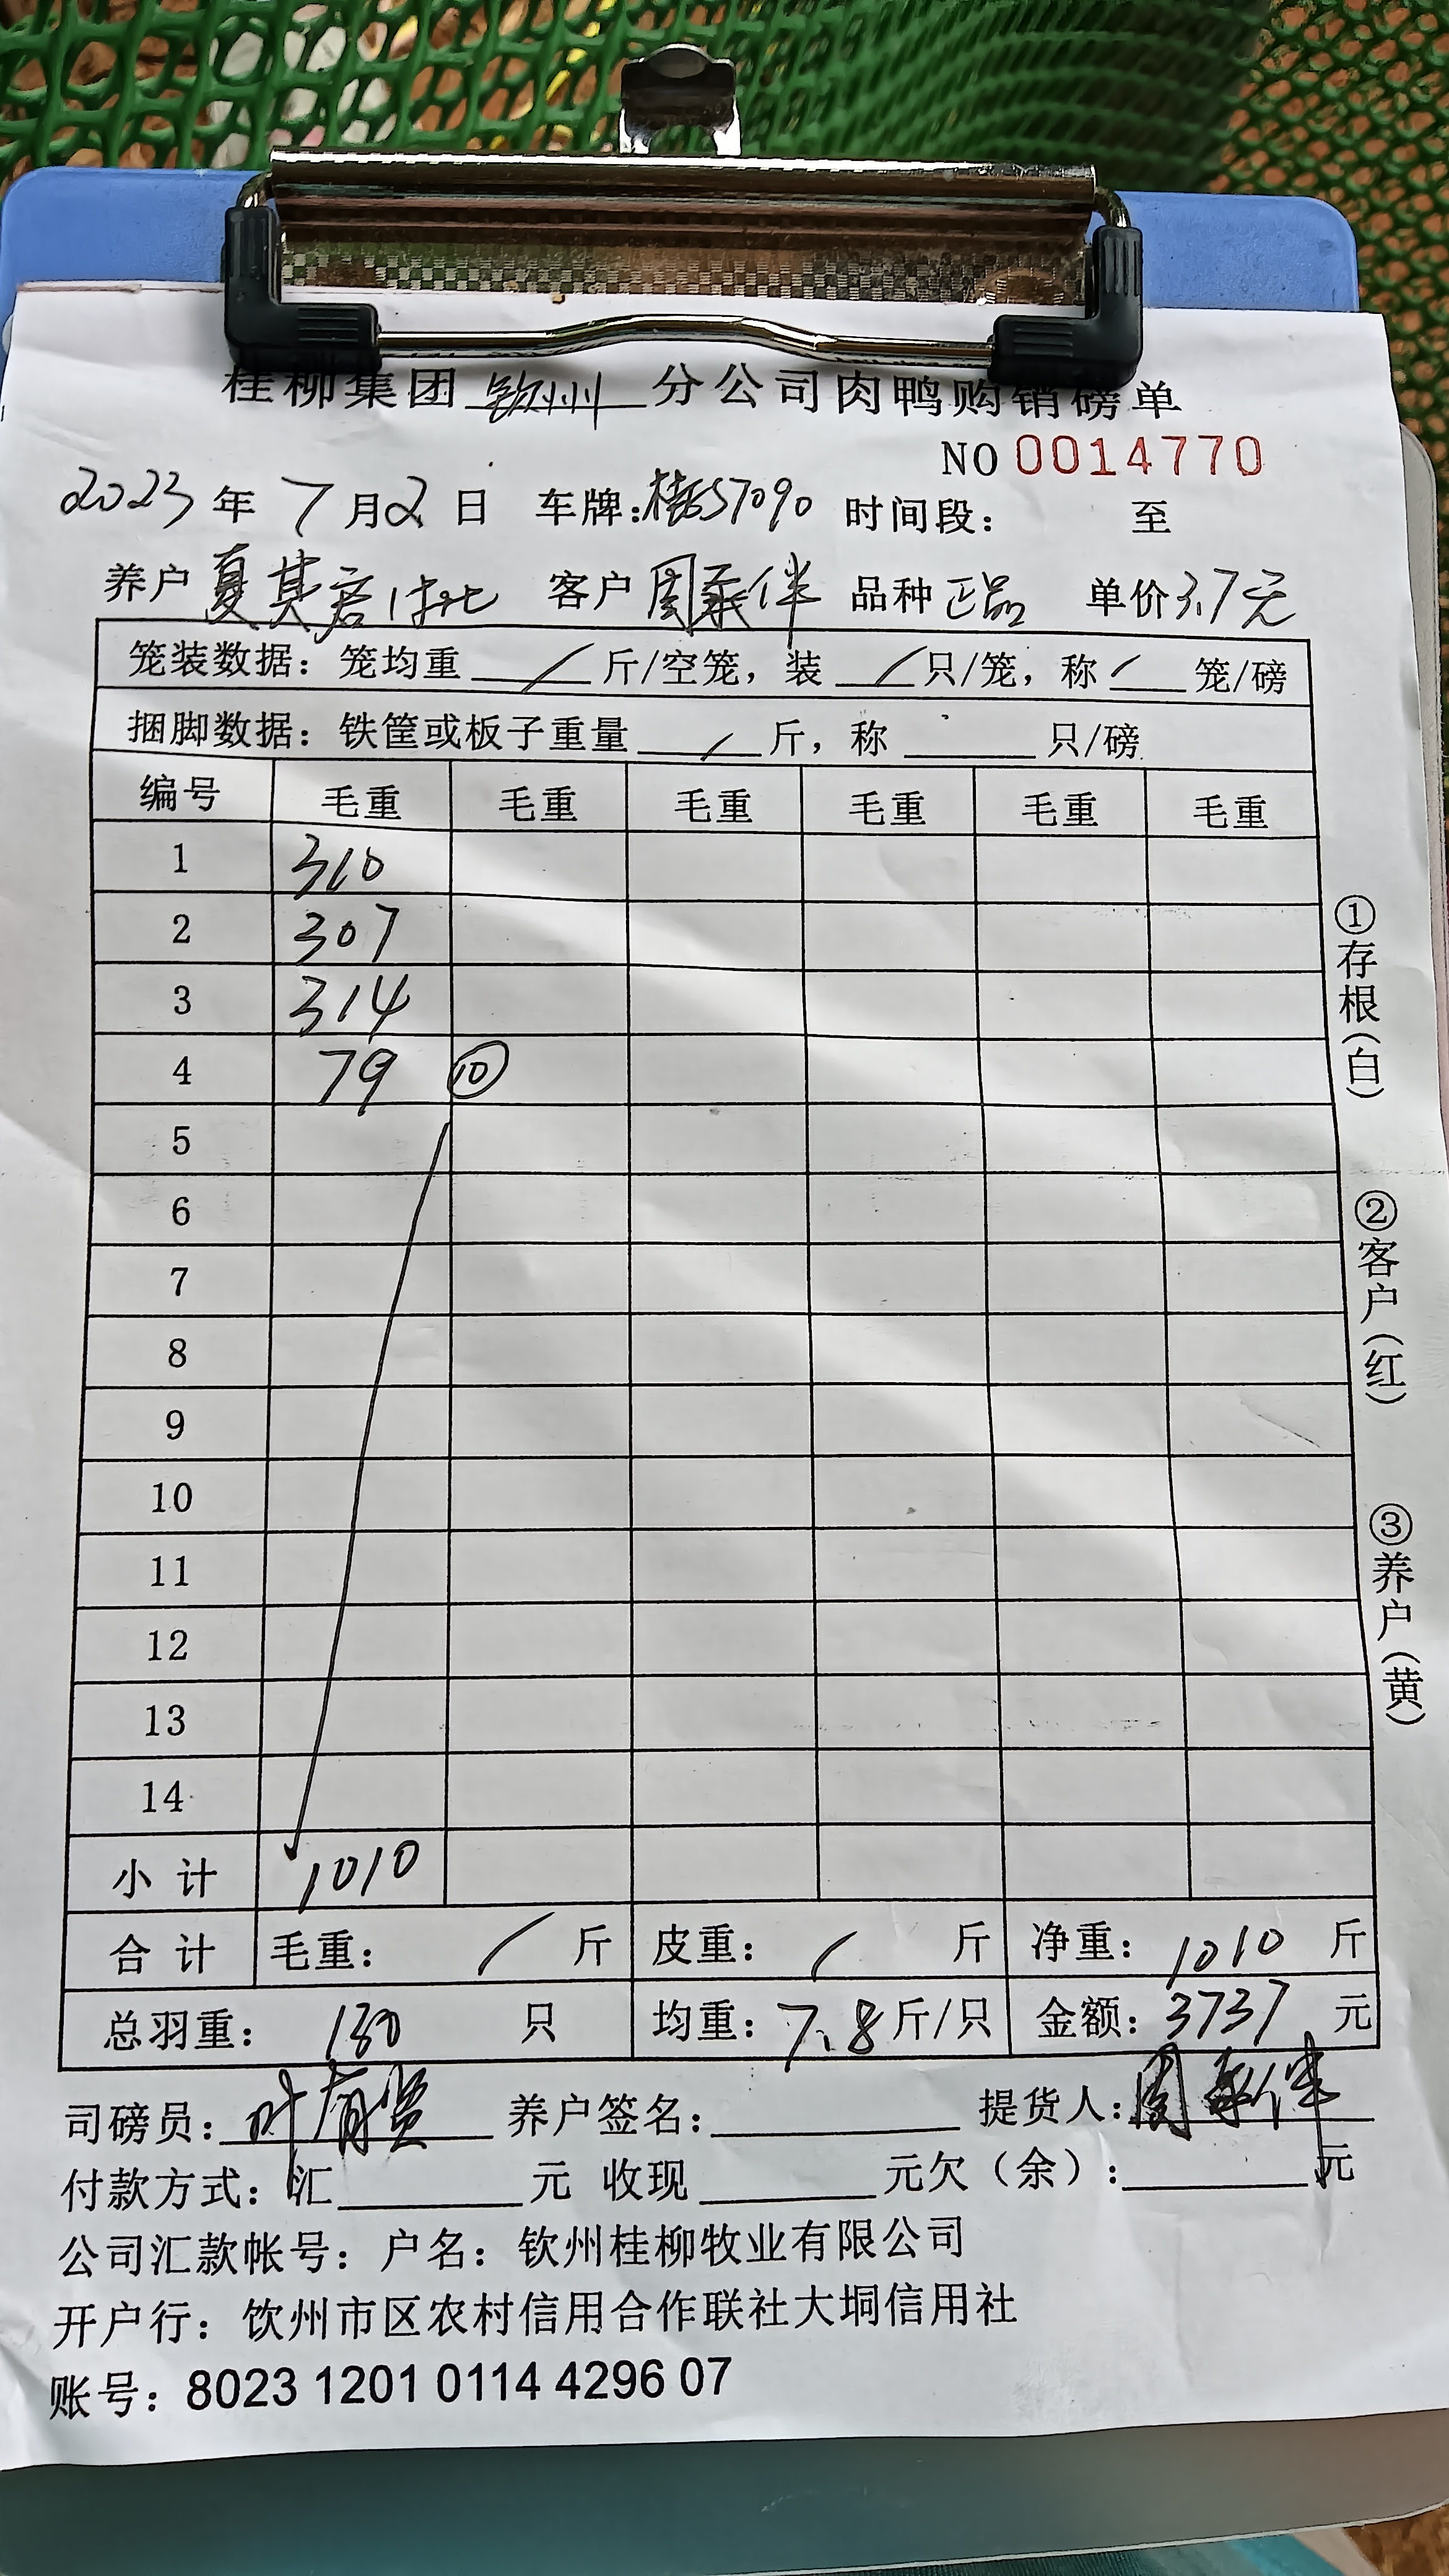 桂柳集团 钦州 分公司肉鸭购销磅单
NO 0014770
2023 年 7 月 2 日 车牌: S7090 时间段: 至
养户 夏其君 客户 周承伴 品种 正品 单价 3.7元
笼装数据: 笼均重 / 斤/空笼, 装 / 只/笼, 称 / 笼/磅
捆脚数据: 铁筐或板子重量 / 斤, 称 只/磅
编号 毛重 毛重 毛重 毛重 毛重 毛重
1 310
2 307
3 314
4 79 ⑩
5
6
7
8
9
10
11
12
13
14
小计 1010
合计 毛重: / 斤 皮重: / 斤 净重: 1010 斤
总羽重: 130 只 均重: 7.8 斤/只 金额: 3737 元
司磅员: 叶有贤 养户签名: 提货人: 周承伴
付款方式: 汇 元 收现 元欠(余): 元
公司汇款帐号: 户名: 钦州桂柳牧业有限公司
开户行: 饮州市区农村信用合作联社大垌信用社
账号: 8023 1201 0114 4296 07
①存根(白)
②客户(红)
③养户(黄)